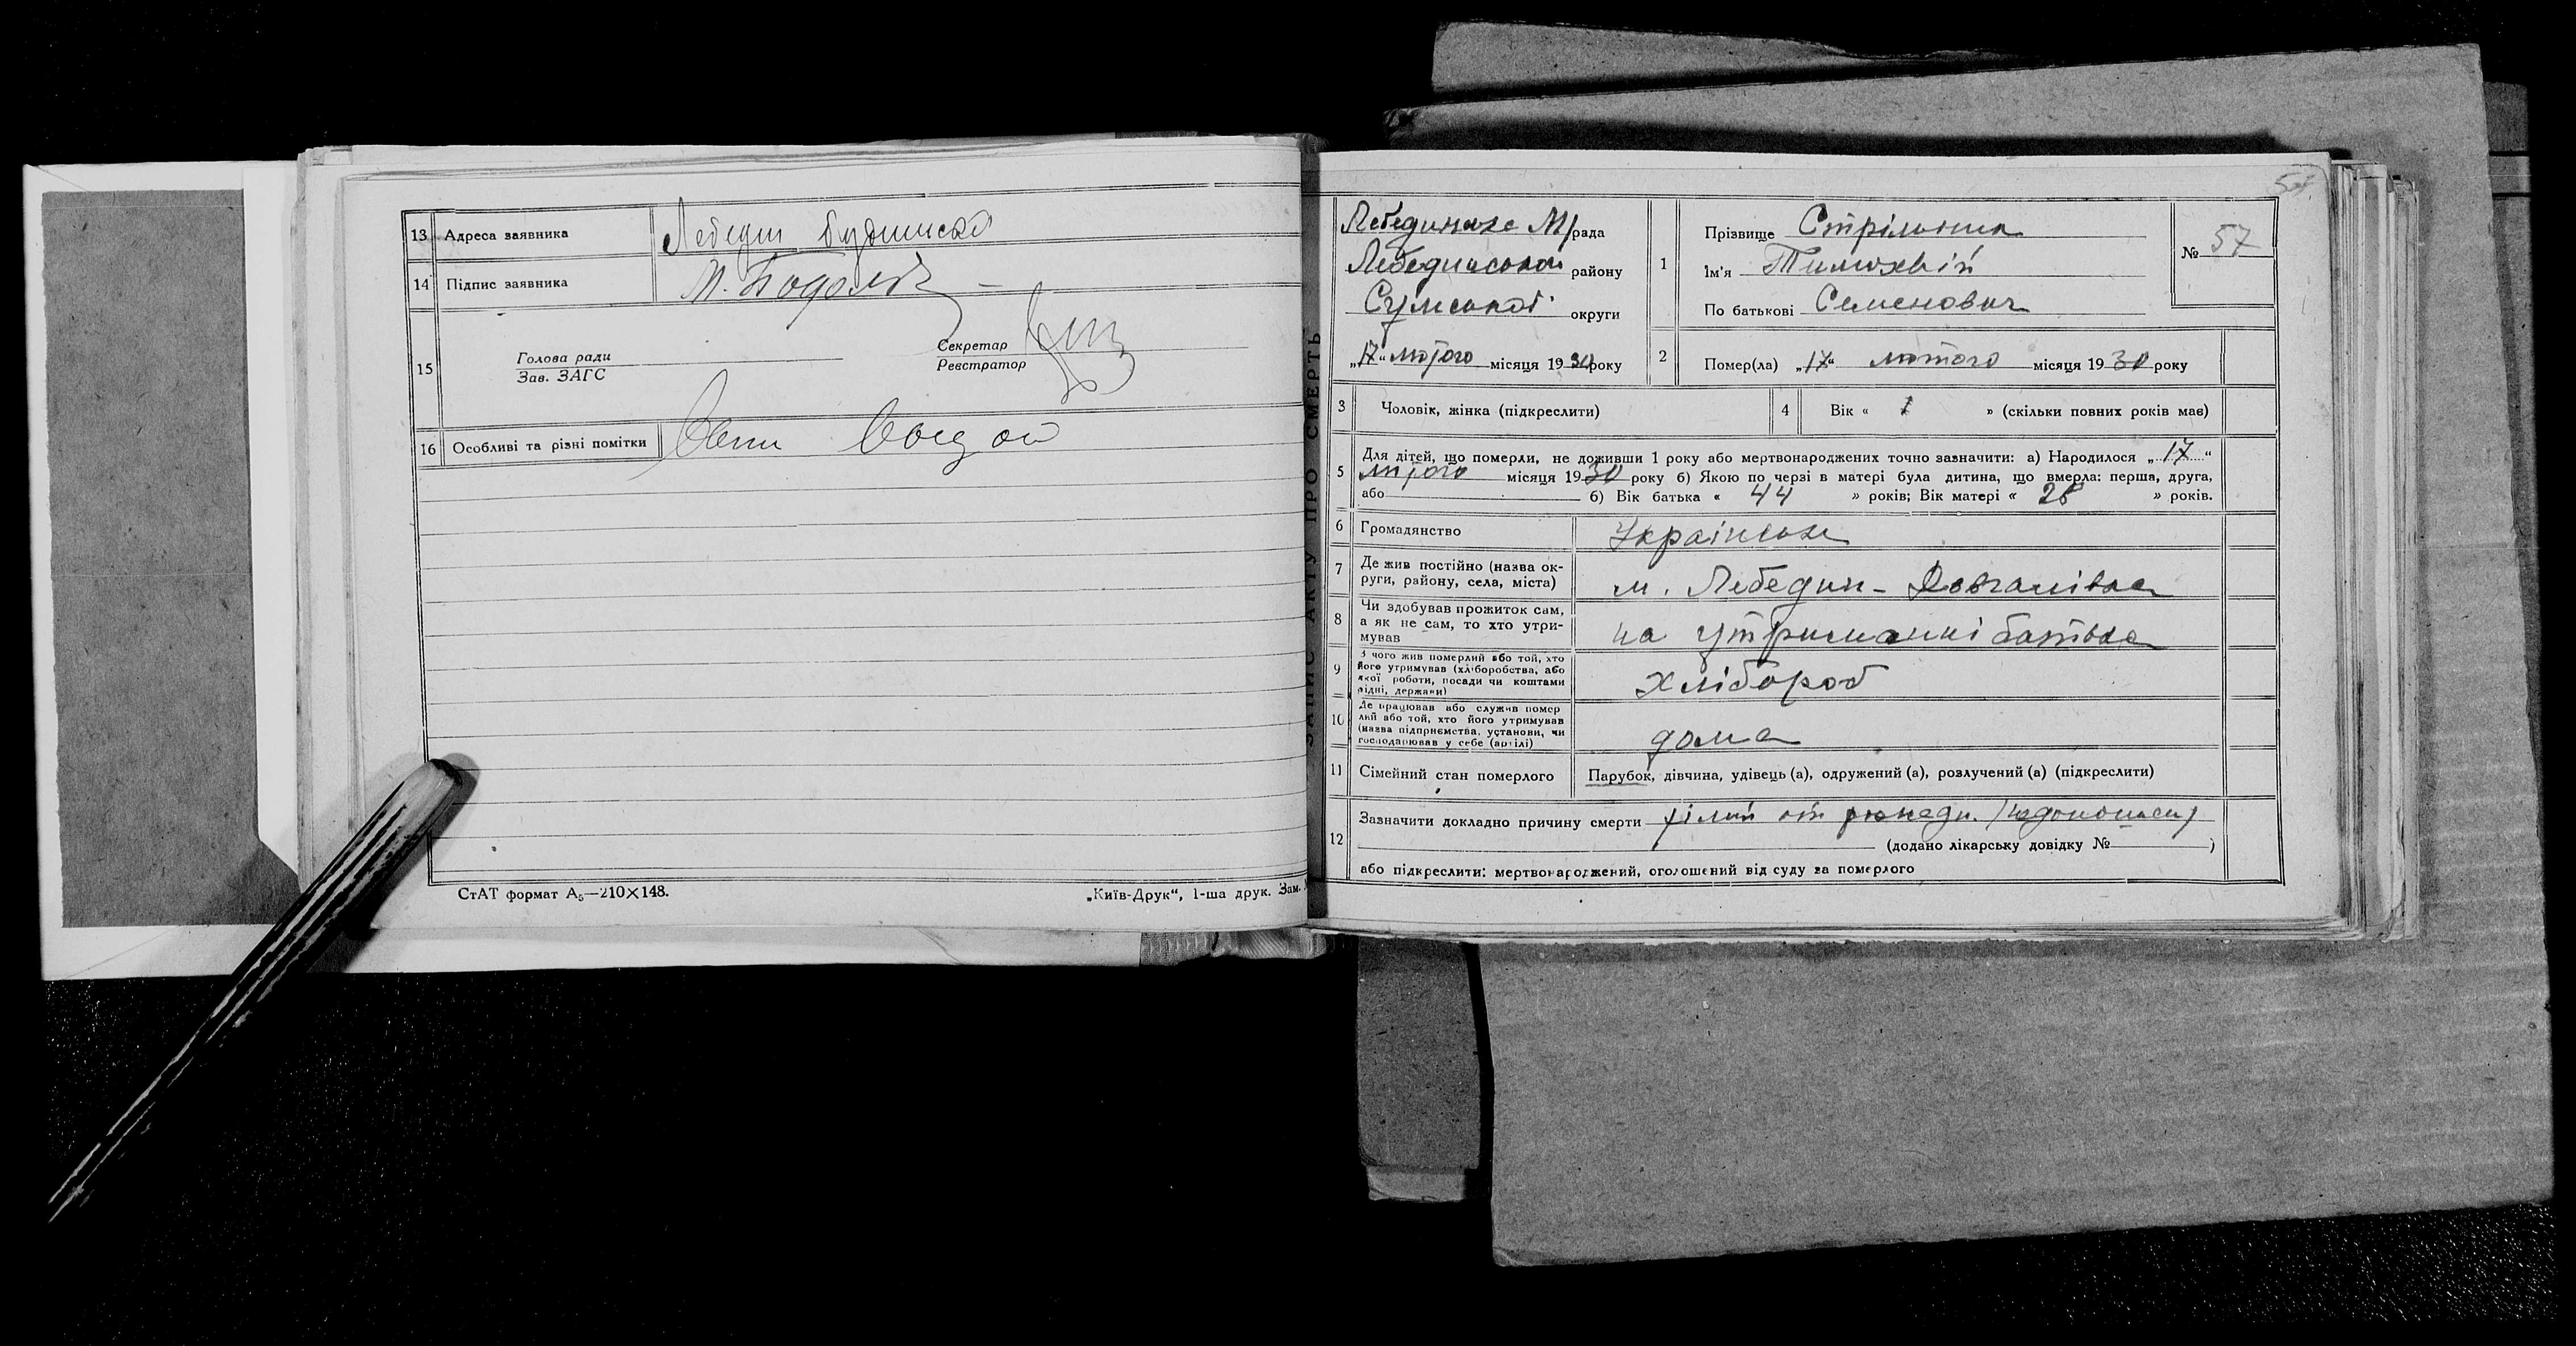 13 Адреса заявника Лебедин
14 Підпис заявника
15 Голова ради
Зав. ЗАГС
Секретар
Реєстратор
16 Особливі та різні помітки
СтАТ формат А₅—210×148.
„Київ-Друк“, 1-ша друк. Зам.
ЗАПИС АКТУ ПРО СМЕРТЬ
Лебединська М/рада
Лебединського району
Сумської округи
„17“ лютого місяця 1930 року
1 Прізвище
Ім'я Тимохвій
По батькові Семенович
№ 57
2 Помер(ла) „17“ лютого місяця 1930 року
3 Чоловік, жінка (підкреслити)
4 Вік « » (скільки повних років має)
5 Для дітей, що померли, не доживши 1 року або мертвонароджених точно зазначити: а) Народилося „17“
лютого місяця 1930 року б) Якою по черзі в матері була дитина, що вмерла: перша, друга,
або б) Вік батька « 44 » років; Вік матері « 28 » років.
6 Громадянство
7 Де жив постійно (назва ок-
руги, району, села, міста) м. Лебедин - Довгалівка
8 Чи здобував прожиток сам,
а як не сам, то хто утри-
мував на утриманні батька
9 З чого жив померлий або той, хто
його утримував (хліборобства, або
якої роботи, посади чи коштами
рідні, держави) хлібороб
10 Де працював або служив помер
лий або той, хто його утримував
(назва підприємства, установи, чи
господарював у себе (артілі) дома
11 Сімейний стан померлого Парубок, дівчина, удівець (а), одружений (а), розлучений (а) (підкреслити)
12 Зазначити докладно причину смерти
(додано лікарську довідку № )
або підкреслити: мертвонароджений, оголошений від суду за померлого